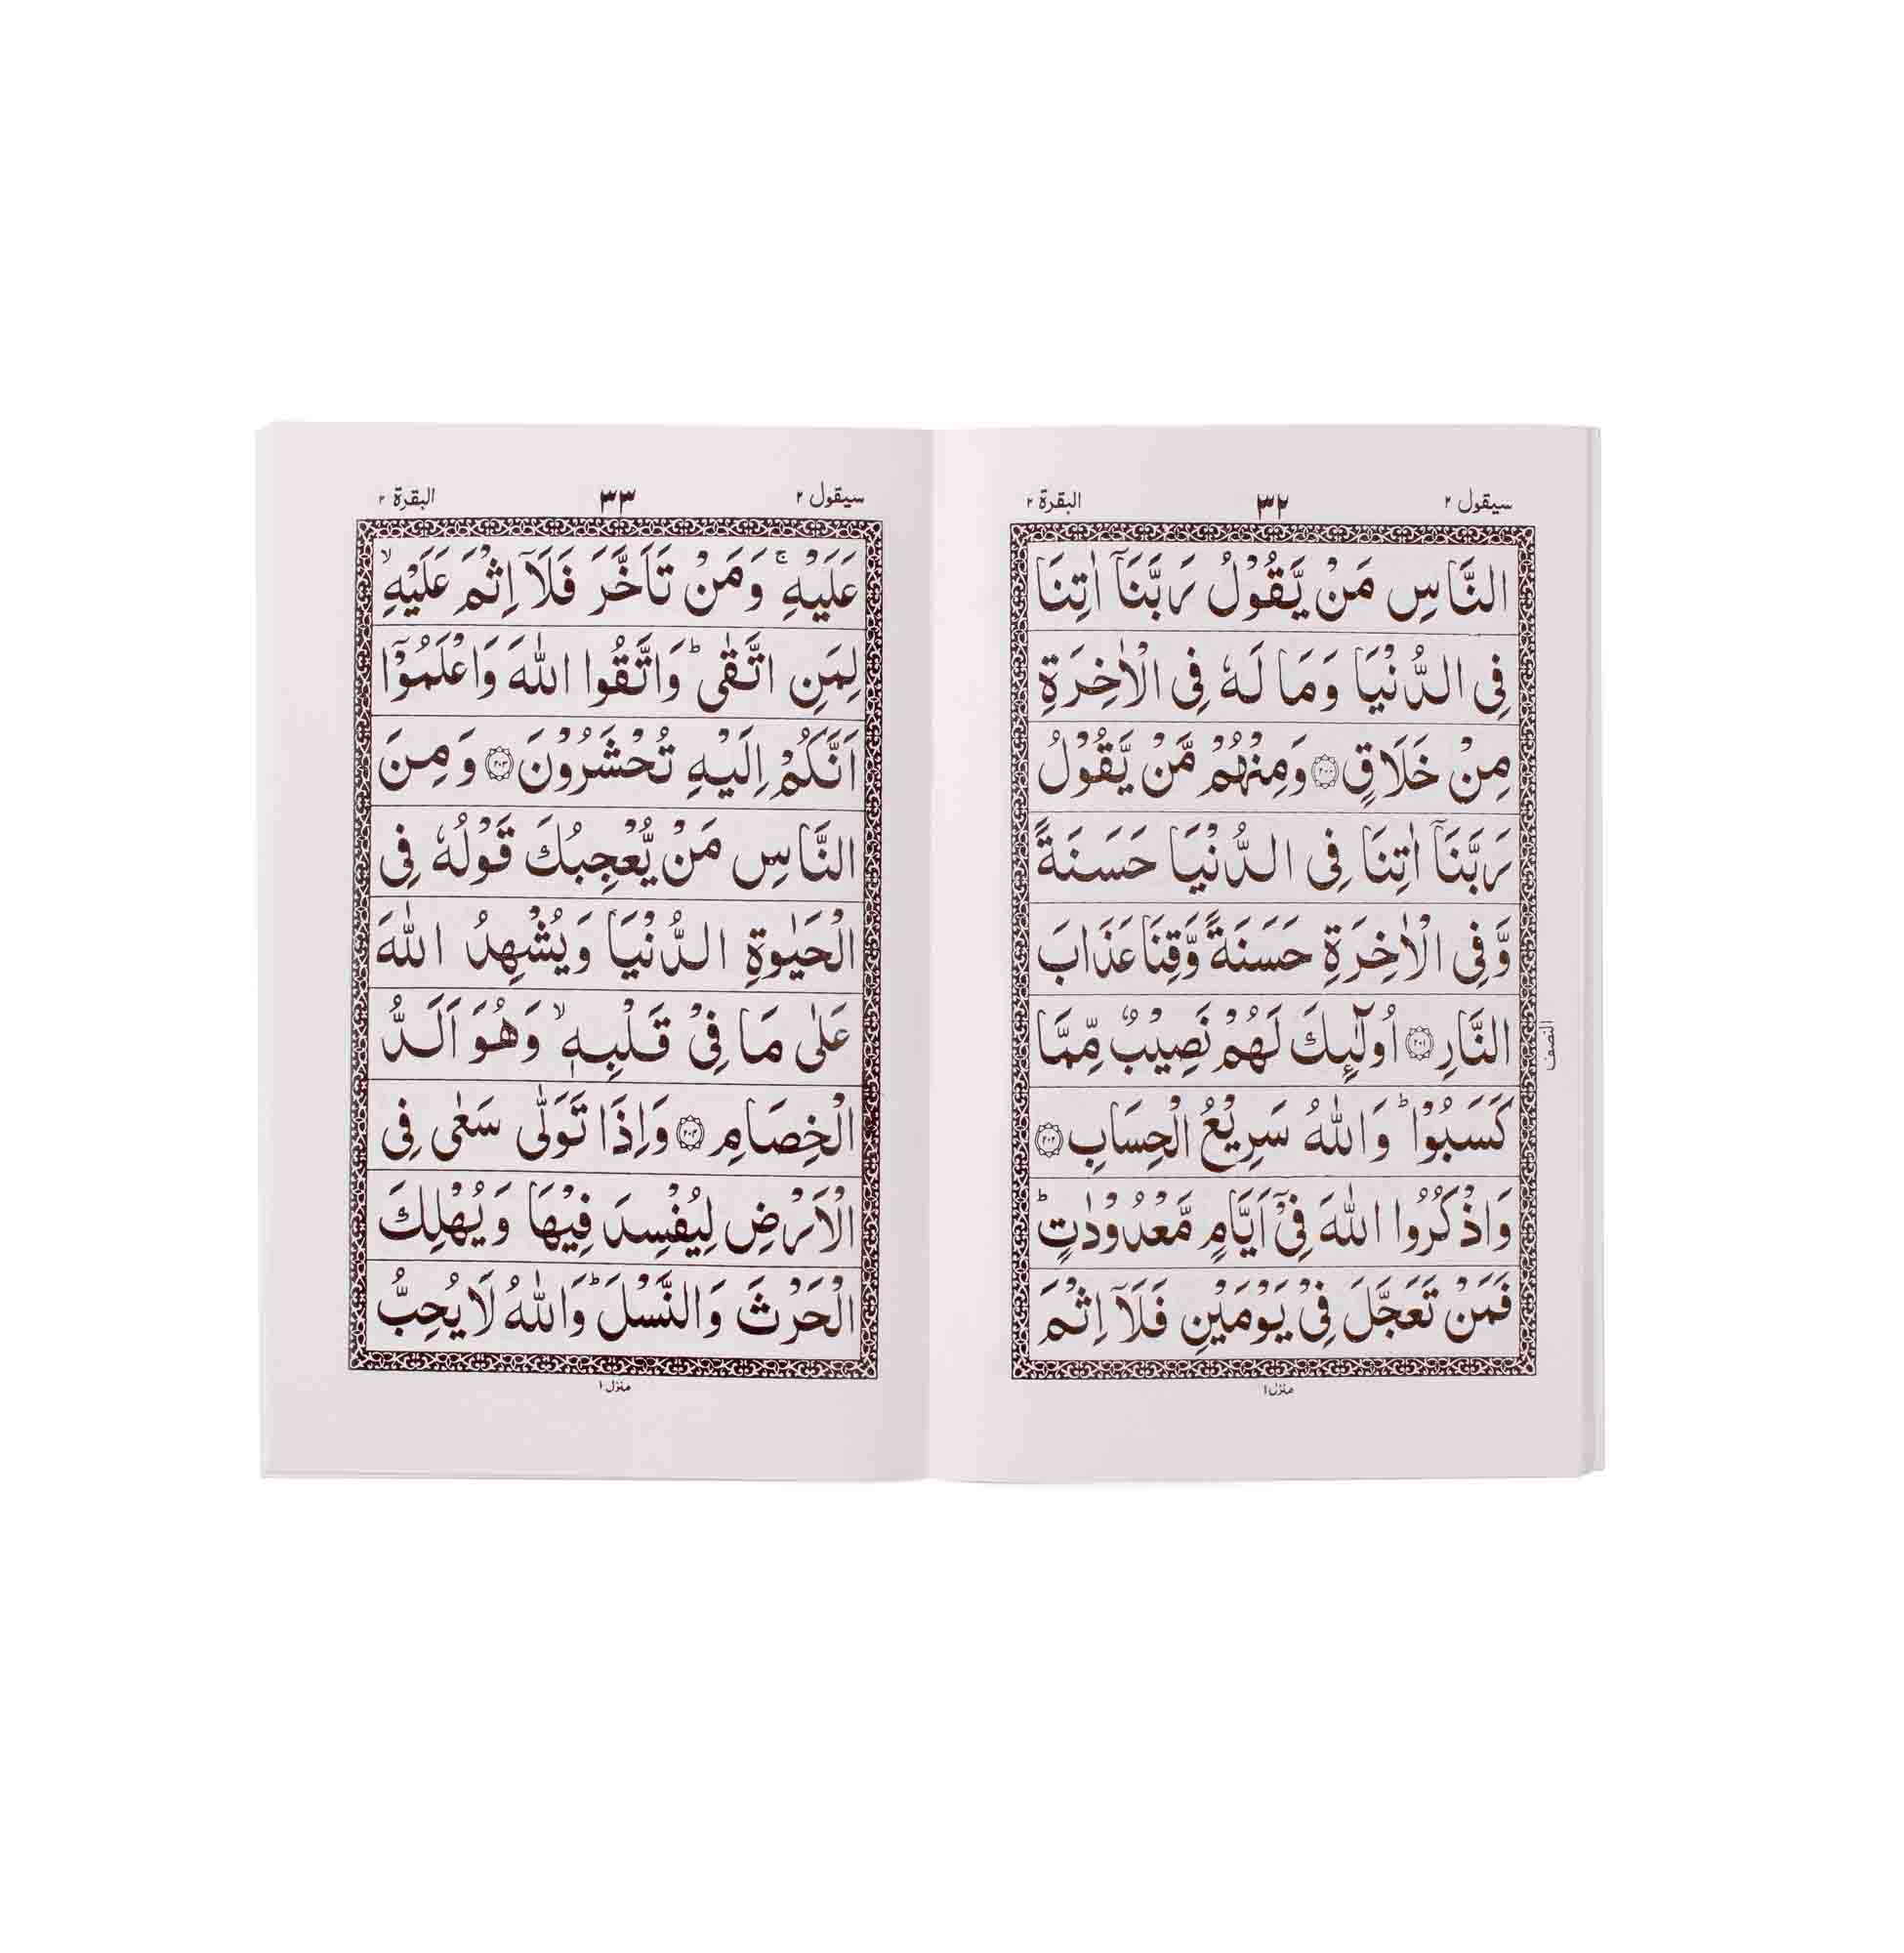 سيقول ٢
٣٢
البقرة ٢
النَّاسِ مَنْ يَّقُوْلُ رَبَّنَآ اٰتِنَا
فِى الدُّنْيَا وَمَا لَهٗ فِى الْاٰخِرَةِ
مِنْ خَلَاقٍ ۝٢٠٠ وَمِنْهُمْ مَّنْ يَّقُوْلُ
رَبَّنَآ اٰتِنَا فِى الدُّنْيَا حَسَنَةً
وَّفِى الْاٰخِرَةِ حَسَنَةً وَّقِنَا عَذَابَ
النَّارِ ۝٢٠١ اُولٰٓئِكَ لَهُمْ نَصِيْبٌ مِّمَّا
كَسَبُوْا ؕ وَاللّٰهُ سَرِيْعُ الْحِسَابِ ۝٢٠٢
وَاذْكُرُوا اللّٰهَ فِىْٓ اَيَّامٍ مَّعْدُوْدٰتٍ ؕ
فَمَنْ تَعَجَّلَ فِىْ يَوْمَيْنِ فَلَآ اِثْمَ
النصف
منزل ١
سيقول ٢
٣٣
البقرة ٢
عَلَيْهِ ۚ وَمَنْ تَاَخَّرَ فَلَآ اِثْمَ عَلَيْهِ ۙ
لِمَنِ اتَّقٰى ؕ وَاتَّقُوا اللّٰهَ وَاعْلَمُوْٓا
اَنَّكُمْ اِلَيْهِ تُحْشَرُوْنَ ۝٢٠٣ وَمِنَ
النَّاسِ مَنْ يُّعْجِبُكَ قَوْلُهٗ فِى
الْحَيٰوةِ الدُّنْيَا وَيُشْهِدُ اللّٰهَ
عَلٰى مَا فِىْ قَلْبِهٖ ۙ وَهُوَ اَلَدُّ
الْخِصَامِ ۝٢٠٤ وَاِذَا تَوَلّٰى سَعٰى فِى
الْاَرْضِ لِيُفْسِدَ فِيْهَا وَيُهْلِكَ
الْحَرْثَ وَالنَّسْلَ ؕ وَاللّٰهُ لَا يُحِبُّ
منزل ١